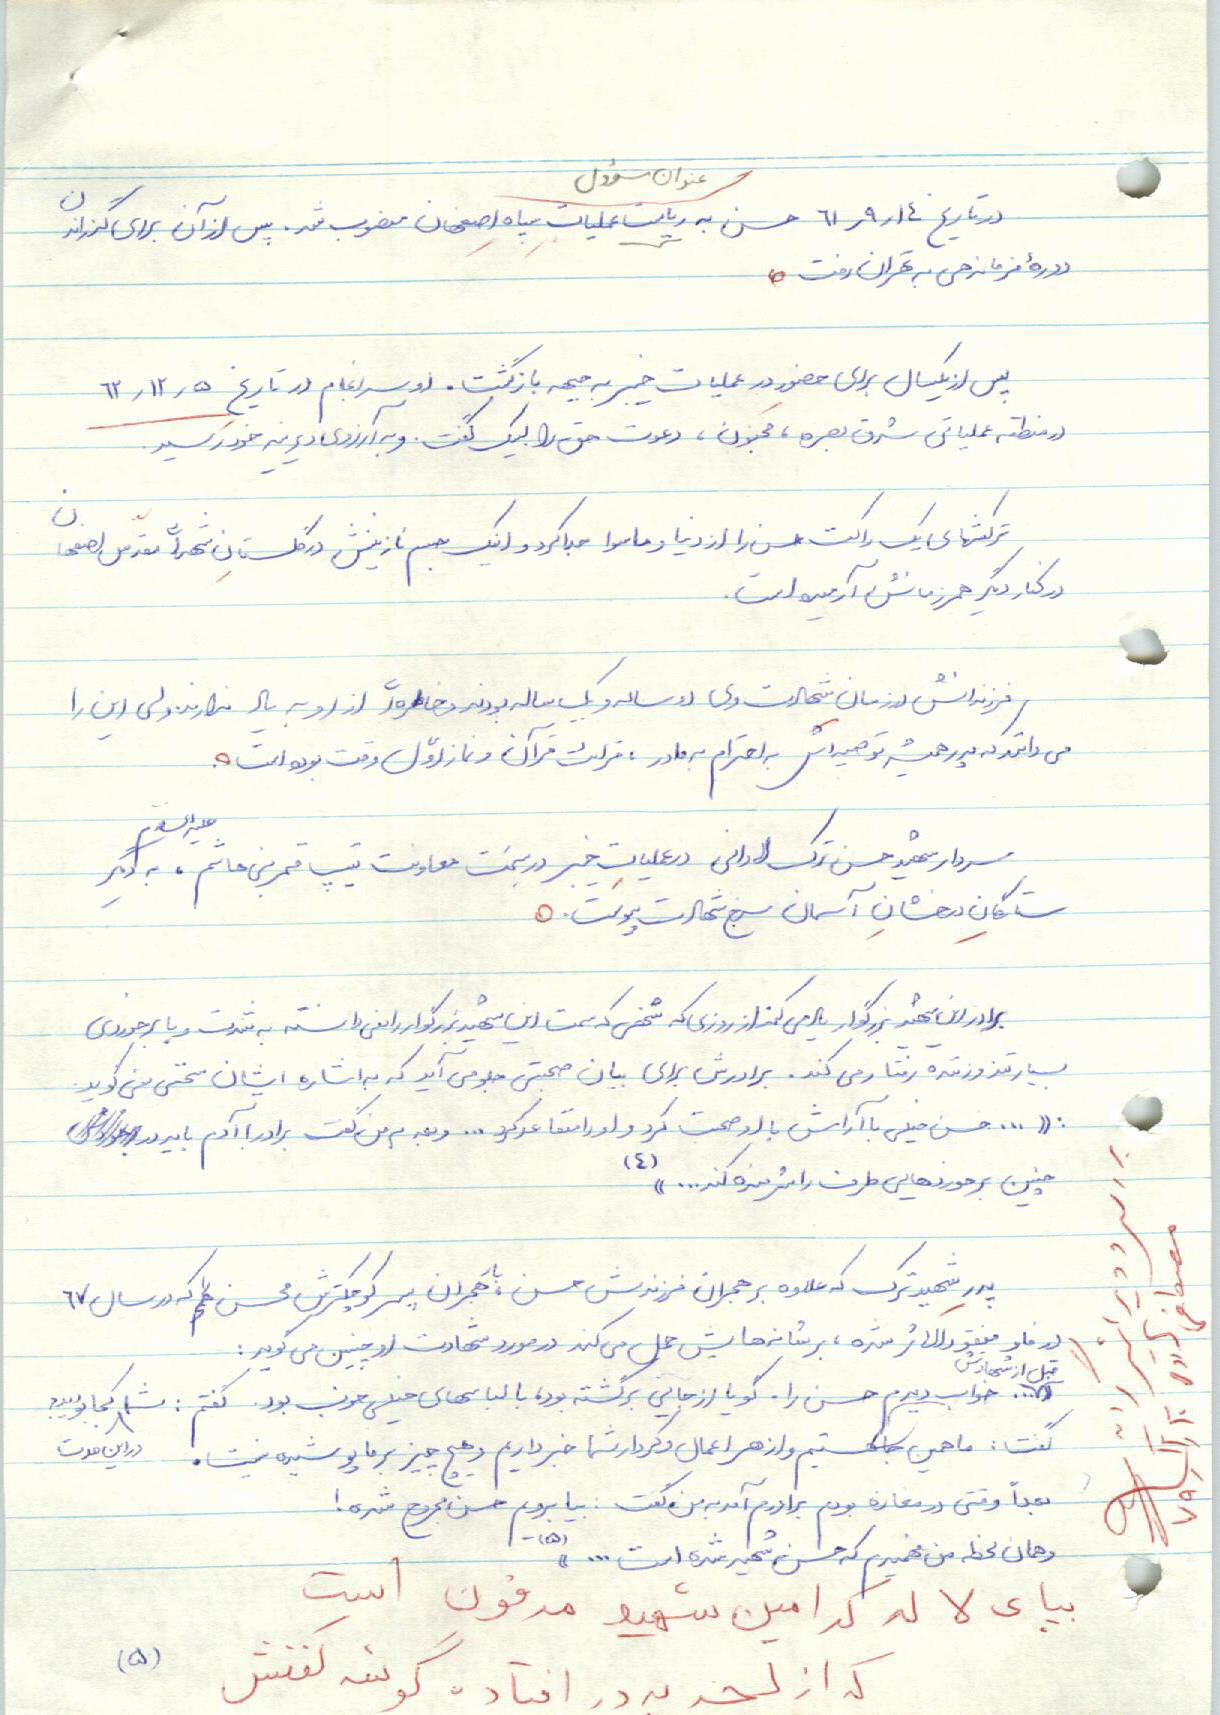 عنوان مسؤول
در تاریخ ۶۱٫۹٫۱۴ حسن به ریاست عملیات سپاه اصفهان منصوب شد. پس از آن برای گذراندن
دورهٔ فرماندهی به تهران رفت.
پس از یکسال برای حضور در عملیات خیبر به جبهه بازگشت. او سرانجام در تاریخ ۶۲٫۱۲٫۵
در منطقه عملیاتی شرق بصره، مجنون، دعوت حق را لبیک گفت. و به آرزوی دیرینه خود رسید.
ترکشهای یک راکت حسن را از دنیا و ماسوا جدا کرد و اینک جسم نازنینش در گلستان شهدای مقدس اصفهان
در کنار دیگر همرزمانش آرمیده است.
فرزندانش در زمان شهادت وی دو ساله و یک ساله بودند و خاطره‌ای از او به یاد ندارند ولی این را
می دانند که پدر همیشه توصیه‌اش به احترام به مادر، قرائت قرآن و نماز اوّل وقت بوده است.
علیه السلام
سردار شهید حسن ترک لادانی در عملیات خیبر در سمت معاونت تیپ قمر بنی هاشم، به دیگر
ستارگان درخشان آسمان سرخ شهادت پیوست.
برادر این شهید بزرگوار یاد می کند از روزی که شخصی که سمت این شهید بزرگوار را نمی دانسته به شدت و با برخوردی
بسیار تند و زننده رفتار می کند. برادرش برای بیان صحبتی جلو می آید که به اشاره ایشان سخنی نمی گوید.
: «... حسن خیلی با آرامش با او صحبت کرد و او را متقاعد کرد ... و بعد به من گفت برادر! آدم باید در
چنین برخوردهایی طرف را شرمنده کند...» (۴)
پدر شهید ترک که علاوه بر هجران فرزندش حسن، هجران پسر کوچکترش محسن هم که در سال ۶۷
در فاو مفقود الاثر شده، بر شانه هایش حمل می کند در مورد شهادت او چنین می گوید:
قبل از شهادتش
«... خواب دیدم حسن را. گویا از جایی برگشته بود، با لباسهای خیلی خوب بود. گفتم: شما کجا بودید
در این مدت
گفت: ما همین جا هستیم و از همه اعمال و کردار شما خبر داریم و هیچ چیز بر ما پوشیده نیست.
بعداً وقتی در مغازه بودم برادرم آمد به من گفت: بیا برویم حسن مجروح شده!
و همان لحظه من فهمیدم که حسن شهید شده است ...» (۵)
بپای لاله کدامین شهید مدفون است
که از لحد به در افتاده گوشه کفنش
(۵)